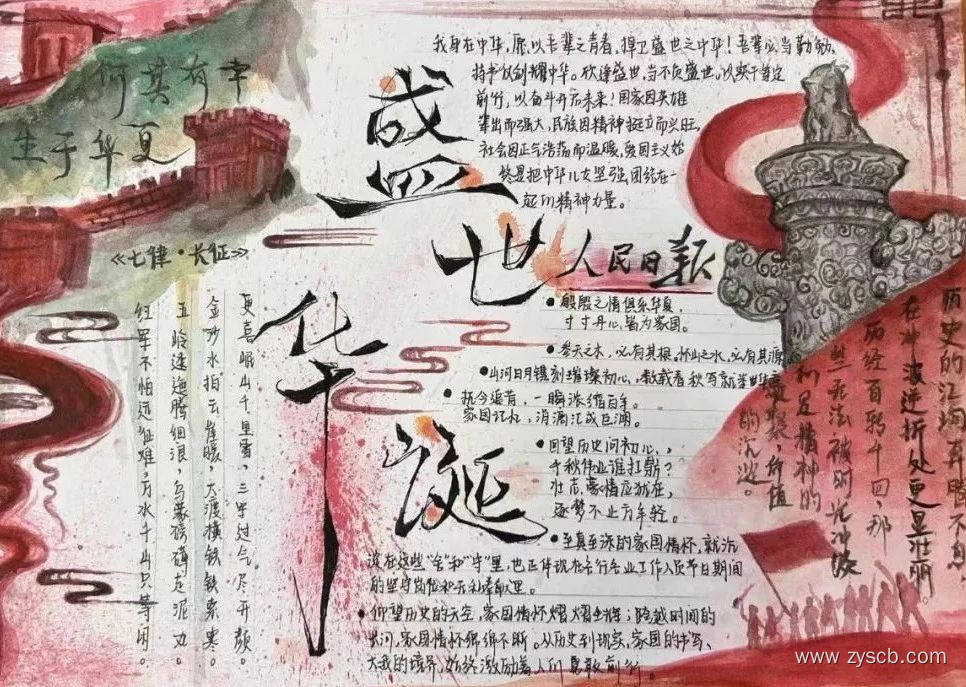 何其有幸
生于华夏
盛世华诞
我身在中华,愿以吾辈之青春,捍卫盛世之中华!吾辈必当勤勉,
持书仗剑耀中华。欣逢盛世,当不负盛世,以实干笃定
前行,以奋斗开启未来!国家因英雄
辈出而强大,民族因精神挺立而兴旺,
社会因正气浩荡而温暖,爱国主义始
终是把中华儿女坚强团结在一
起的精神力量。
《七律·长征》
红军不怕远征难,万水千山只等闲。
五岭逶迤腾细浪,乌蒙磅礴走泥丸。
金沙水拍云崖暖,大渡横铁索寒。
更喜岷山千里雪,三军过后尽开颜。
人民日报
殷殷之情俱系华夏,
寸寸丹心,皆为家国。
参天之木,必有其根,怀山之水,必有其源
山河日月镌刻璀璨初心,
抚今追昔,一瞬浓缩百年。
家国记忆,涓滴汇成巨澜。
回望历史问初心,
千秋伟业谁扛鼎?
壮志豪情应犹在,
逐梦不止方年轻。
至真至深的家国情怀,就沉
淀在这些“舍”和“守”里,也正体现在各行各业工作人员节日期间
的坚守岗位和无私奉献里。
仰望历史的天空,家国情怀熠熠生辉;跨越时间的
长河,家国情怀绵绵不断。从历史到现实,家国的书写、
大我的境界,始终激励着人们勇敢前行。
历史的江河奔腾不息,
在冲波逆折处更显壮丽。
历经百转千回,那
些无法被时光冲淡
的是精神的
所值
的沉淀。
www.zyscb.com